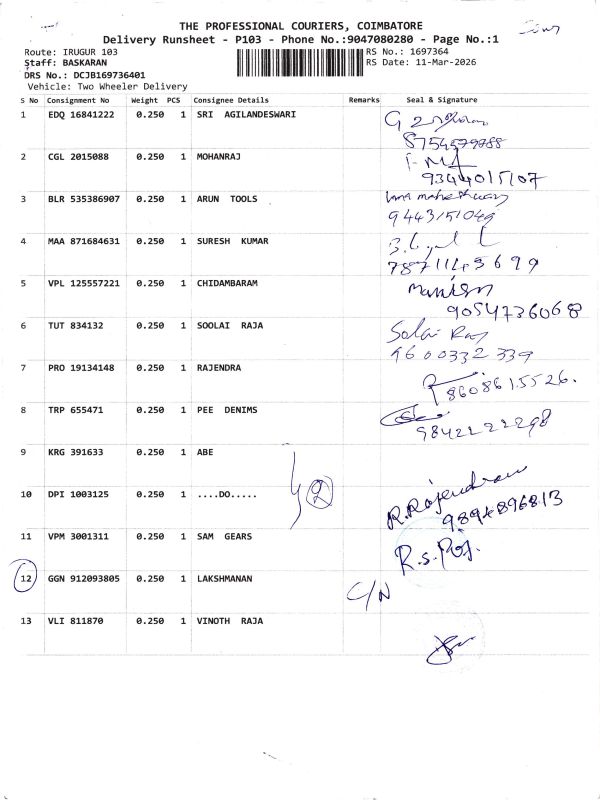 THE PROFESSIONAL COURIERS, COIMBATORE
Delivery Runsheet - P103 - Phone No.:9047080280 - Page No.:1
Route: IRUGUR 103 RS No.: 1697364
Staff: BASKARAN RS Date: 11-Mar-2026
DRS No.: DCJB169736401
Vehicle: Two Wheeler Delivery
S No Consignment No Weight PCS Consignee Details Remarks Seal & Signature
1 EDQ 16841222 0.250 1 SRI AGILANDESWARI
2 CGL 2015088 0.250 1 MOHANRAJ
9344015107
3 BLR 535386907 0.250 1 ARUN TOOLS
9443151049
4 MAA 871684631 0.250 1 SURESH KUMAR
7871145699
5 VPL 125557221 0.250 1 CHIDAMBARAM
9054736068
6 TUT 834132 0.250 1 SOOLAI RAJA Solai Raj
9600332339
7 PRO 19134148 0.250 1 RAJENDRA
8608615526.
8 TRP 655471 0.250 1 PEE DENIMS
9842222298
9 KRG 391633 0.250 1 ABE
10 DPI 1003125 0.250 1 ....DO..... 2 R.Rajendran
9894896813
11 VPM 3001311 0.250 1 SAM GEARS
12 GGN 912093805 0.250 1 LAKSHMANAN C/N
13 VLI 811870 0.250 1 VINOTH RAJA